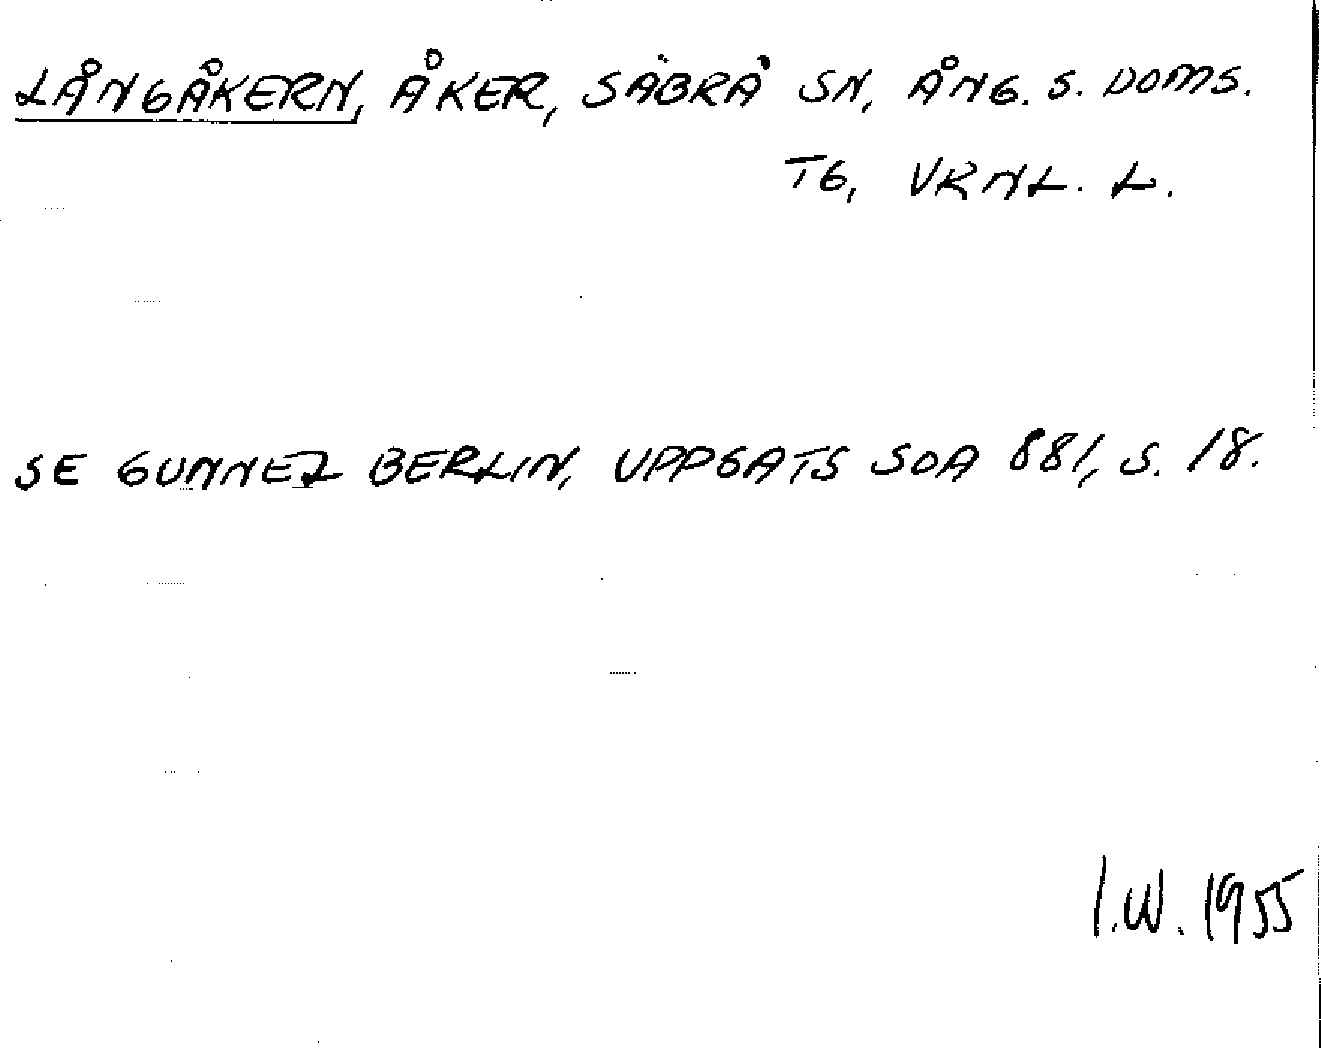 LÅNGÅKERN, ÅKER, SÄBRÅ SN, ÅNG. S. DOMS.
TG, VRNL. L.
SE GUNNEL BERLIN, UPPSATS SOA 881, S. 18.
I.W. 1955